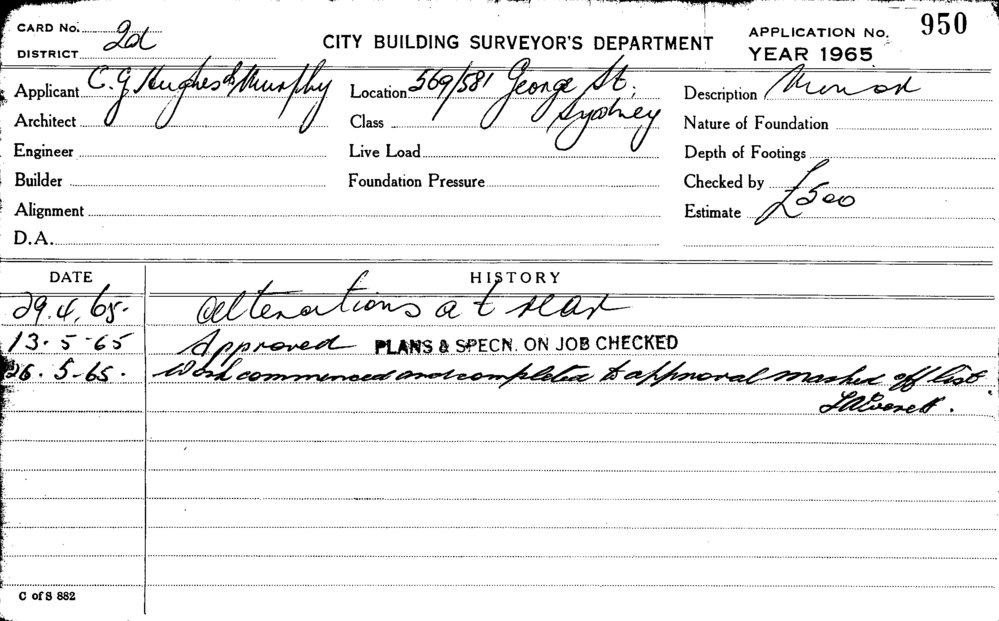 CARD No. 2d
DISTRICT
CITY BUILDING SURVEYOR'S DEPARTMENT
APPLICATION No. 950
YEAR 1965
Applicant C. G. Hughes & Murphy
Location 569/581 George St; Sydney
Description Minor
Architect
Class
Nature of Foundation
Engineer
Live Load
Depth of Footings
Builder
Foundation Pressure
Checked by
Alignment
Estimate £500
D.A.
DATE
HISTORY
29.4.65. Alterations at rear
13.5-65 Approved PLANS & SPECN. ON JOB CHECKED
26.5-65. Work commenced and completed to approval marked off list
C of S 882